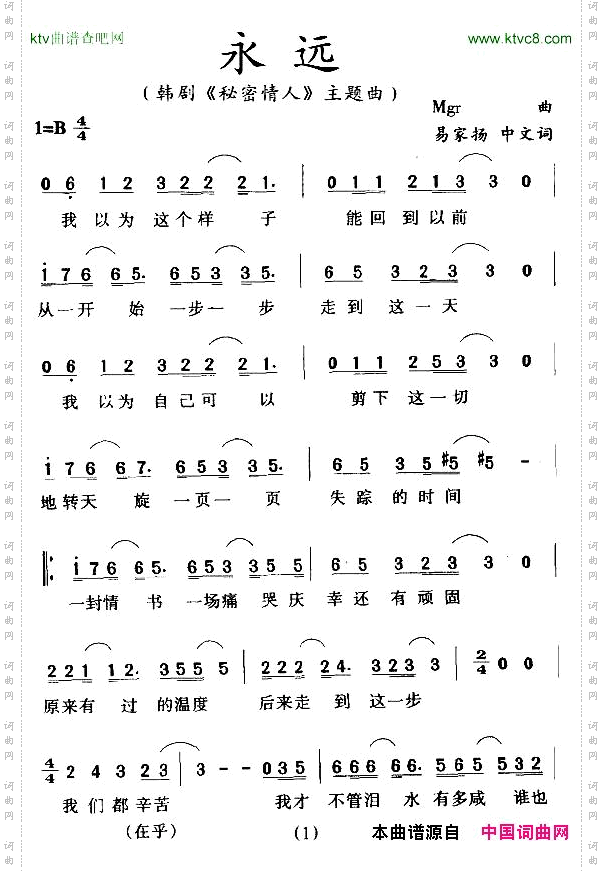 ktv曲谱查吧网 www.ktvc8.com
永远
(韩剧《秘密情人》主题曲)
Mgr 曲
1=B 4/4 易家扬 中文词
0 6 1 2 3 2 2 2 2 1. | 0 1 1 2 1 3 3 0 |
我 以为 这个样 子 能回到以前
1 7 6 6 6 5. 6 5 3 3 5. | 6 5 3 2 3 3 0 |
从一开 始 一步一 步 走到 这一天
0 6 1 2 3 2 2 2 2 1. | 0 1 1 2 5 3 3 0 |
我 以为 自己可 以 剪下 这一切
1 7 6 6 6 7. 6 5 3 3 0. | 6 5 3 5 #5 #5 - |
地转天 旋 一页一 页 失踪 的时间
1 7 6 6 6 5. 6 5 3 3 5 5 | 6 5 3 2 3 3 0 |
一封情 书 一场痛 哭庆 幸还 有顽固
2 2 1 1 2. 1 3 5 5 5 5 | 2 2 2 2 4. 3 2 3 3 | 2/4 0 0 |
原来有 过 的温度 后来走 到 这一步
4/4 2 4 3 2 3 | 3 - - 0 3 5 | 6 6 6 6 6. 5 6 5 5 3 2 |
我们都辛苦 我才 不管泪 水 有多咸 谁也
(在乎) (1) 本曲谱源自 中国词曲网
词曲网